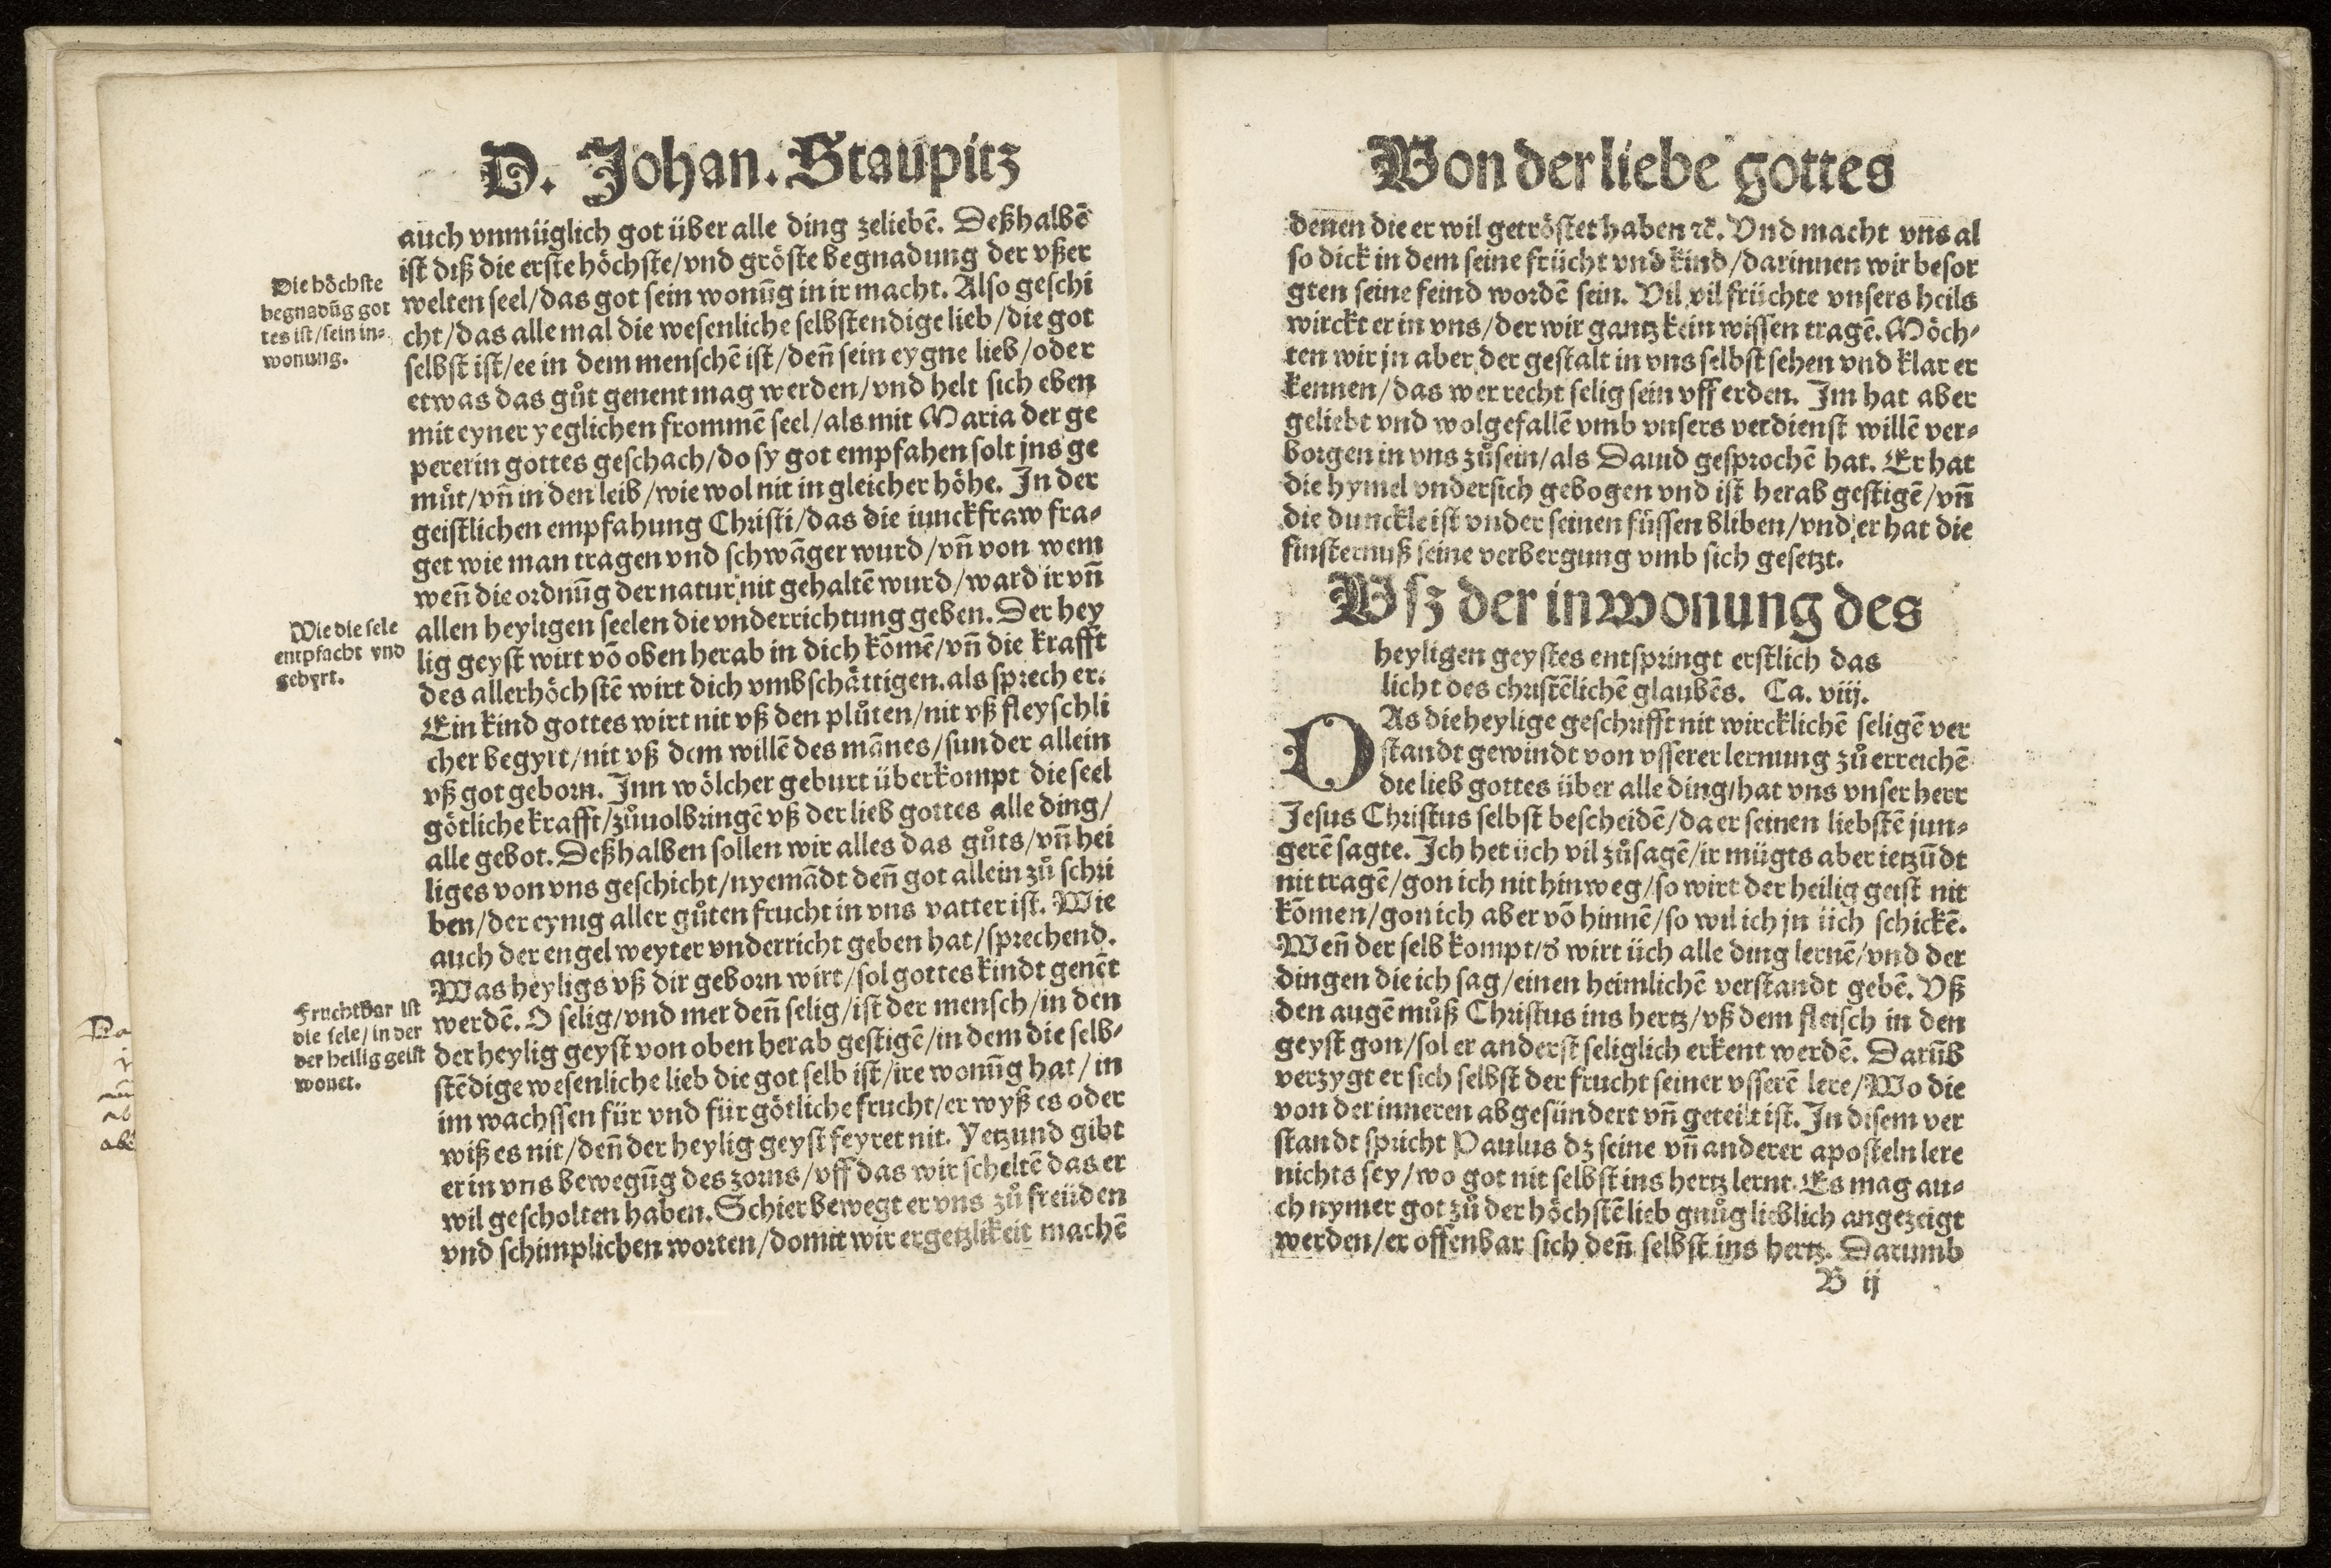 D. Johan. Staupitz
auch vnmüglich got über alle ding zeliebē. Deßhalbē
ist diß die erste höchste/vnd gröste begnadung der vßer
welten seel/das got sein wonūg in ir macht. Also geschi
cht/das alle mal die wesenliche selbstendige lieb/die got
selbst ist/ee in dem menschē ist/deñ sein eygne lieb/oder
etwas das gůt genent mag werden/vnd helt sich eben
mit eyner yeglichen frommē seel/als mit Maria der ge
pererin gottes geschach/do sy got empfahen solt jns ge
můt/vñ in den leib/wie wol nit in gleicher höhe. In der
geistlichen empfahung Christi/das die iunckfraw fra-
get wie man tragen vnd schwāger wurd/vñ von wem
weñ die ordnūg der natur nit gehaltē wurd/ward ir vñ
allen heyligen seelen die vnderrichtung geben. Der hey
lig geyst wirt vō oben herab in dich kōmē/vñ die krafft
des allerhöchstē wirt dich vmbschättigen. als sprech er:
Ein kind gottes wirt nit vß den plůten/nit vß fleyschli
cher begyrt/nit vß dem willē des mānes/sunder allein
vß got geborn. Inn wölcher geburt überkompt die seel
götliche krafft/zůuolbringē vß der lieb gottes alle ding/
alle gebot. Deßhalben sollen wir alles das gůts/vñ hei
liges von vns geschicht/nyemādt deñ got allein zů schri
ben/der eynig aller gůten frucht in vns vatter ist. Wie
auch der engel weyter vnderricht geben hat/sprechend.
Was heyligs vß dir geborn wirt/sol gottes kindt genēt
werdē. O selig/vnd mer deñ selig/ist der mensch/in den
der heylig geyst von oben herab gestigē/in dem die selb-
stēdige wesenliche lieb die got selb ist/ire wonūg hat/in
im wachssen für vnd für götliche frucht/er wyß es oder
wiß es nit/deñ der heylig geyst feyret nit. Yetzund gibt
er in vns bewegūg des zorns/vff das wir scheltē das er
wil gescholten haben. Schier bewegt er vns zů freüden
vnd schimplichen worten/domit wir ergetzlikeit machē
Die höchste
begnadūg got
tes ist/sein in-
wonung.
Wie die sele
entpfacht vnd
gebyrt.
Fruchtbar ist
die sele/in der
der heilig geist
wonet.
Von der liebe gottes
denen die er wil getröstet haben ꝛc. Vnd macht vns al
so dick in dem seine frücht vnd kind/darinnen wir besor
gten seine feind wordē sein. Vil vil früchte vnsers heils
wirckt er in vns/der wir gantz kein wissen tragē. Möch-
ten wir jn aber der gestalt in vns selbst sehen vnd klar er
kennen/das wer recht selig sein vff erden. Im hat aber
geliebt vnd wolgefallē vmb vnsers verdienst willē ver-
borgen in vns zůsein/als Dauid gesprochē hat. Er hat
die hymel vndersich gebogen vnd ist herab gestigē/vñ
die dunckle ist vnder seinen füssen bliben/vnd er hat die
finsternuß seine verbergung vmb sich gesetzt.
Vsz der inwonung des
heyligen geystes entspringt erstlich das
licht des christēlichē glaubēs. Ca. viij.
DAs die heylige geschrifft nit wircklichē seligē ver
standt gewindt von vsserer lernung zů erreichē
die lieb gottes über alle ding/hat vns vnser herr
Jesus Christus selbst bescheidē/da er seinen liebstē jun-
gerē sagte. Ich het üch vil zůsagē/ir mügts aber ietzūdt
nit tragē/gon ich nit hinweg/so wirt der heilig geist nit
kōmen/gon ich aber vō hinnē/so wil ich jn üch schickē.
Weñ der selb kompt/d̕ wirt üch alle ding lernē/vnd der
dingen die ich sag/einen heimlichē verstandt gebē. Vß
den augē můß Christus ins hertz/vß dem fleisch in den
geyst gon/sol er anderst seliglich erkent werdē. Darūb
verzygt er sich selbst der frucht seiner vsserē lere/Wo die
von der inneren abgesündert vñ geteilt ist. In disem ver
standt spricht Paulus dz seine vñ anderer aposteln lere
nichts sey/wo got nit selbst ins hertz lernt. Es mag au-
ch nymer got zů der höchstē lieb gnůg lieblich angezeigt
werden/er offenbar sich deñ selbst ins hertz. Darumb
B ij